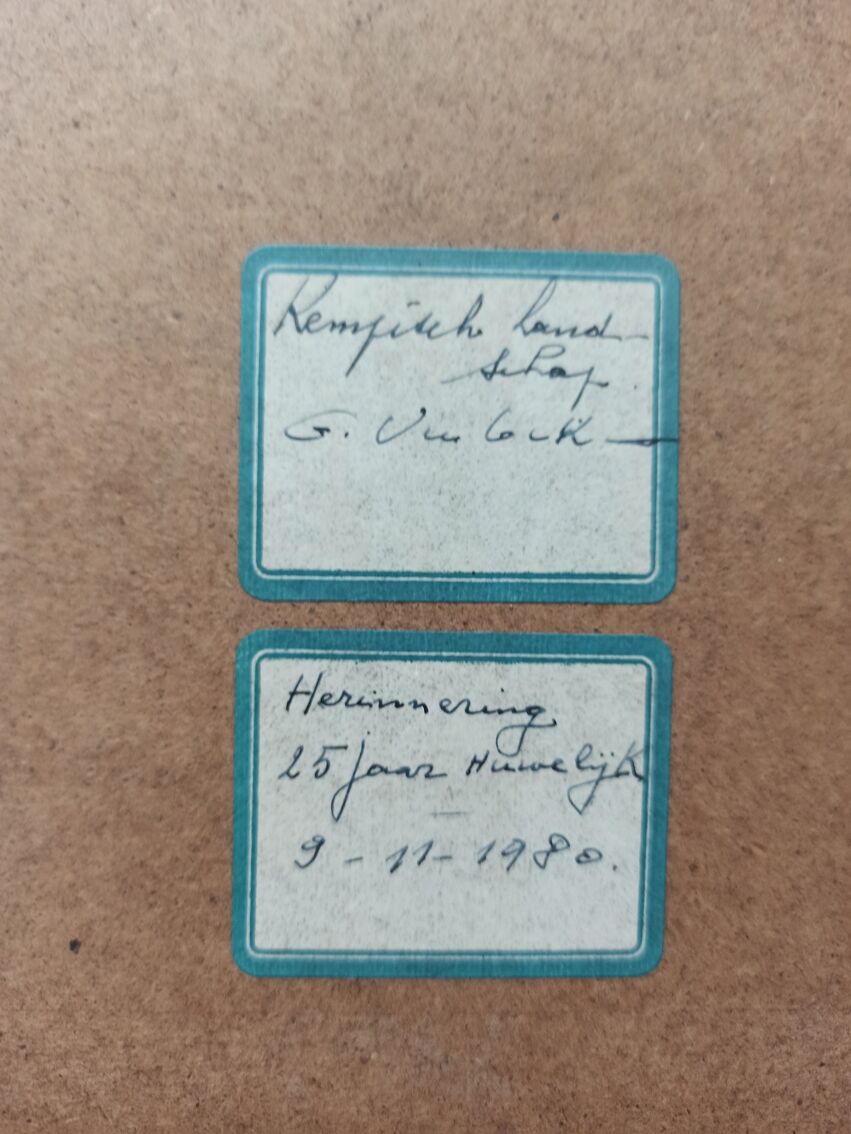 Kempisch Land-
schap.
G.
Herinnering
25 jaar Huwelijk
9-11-1980.